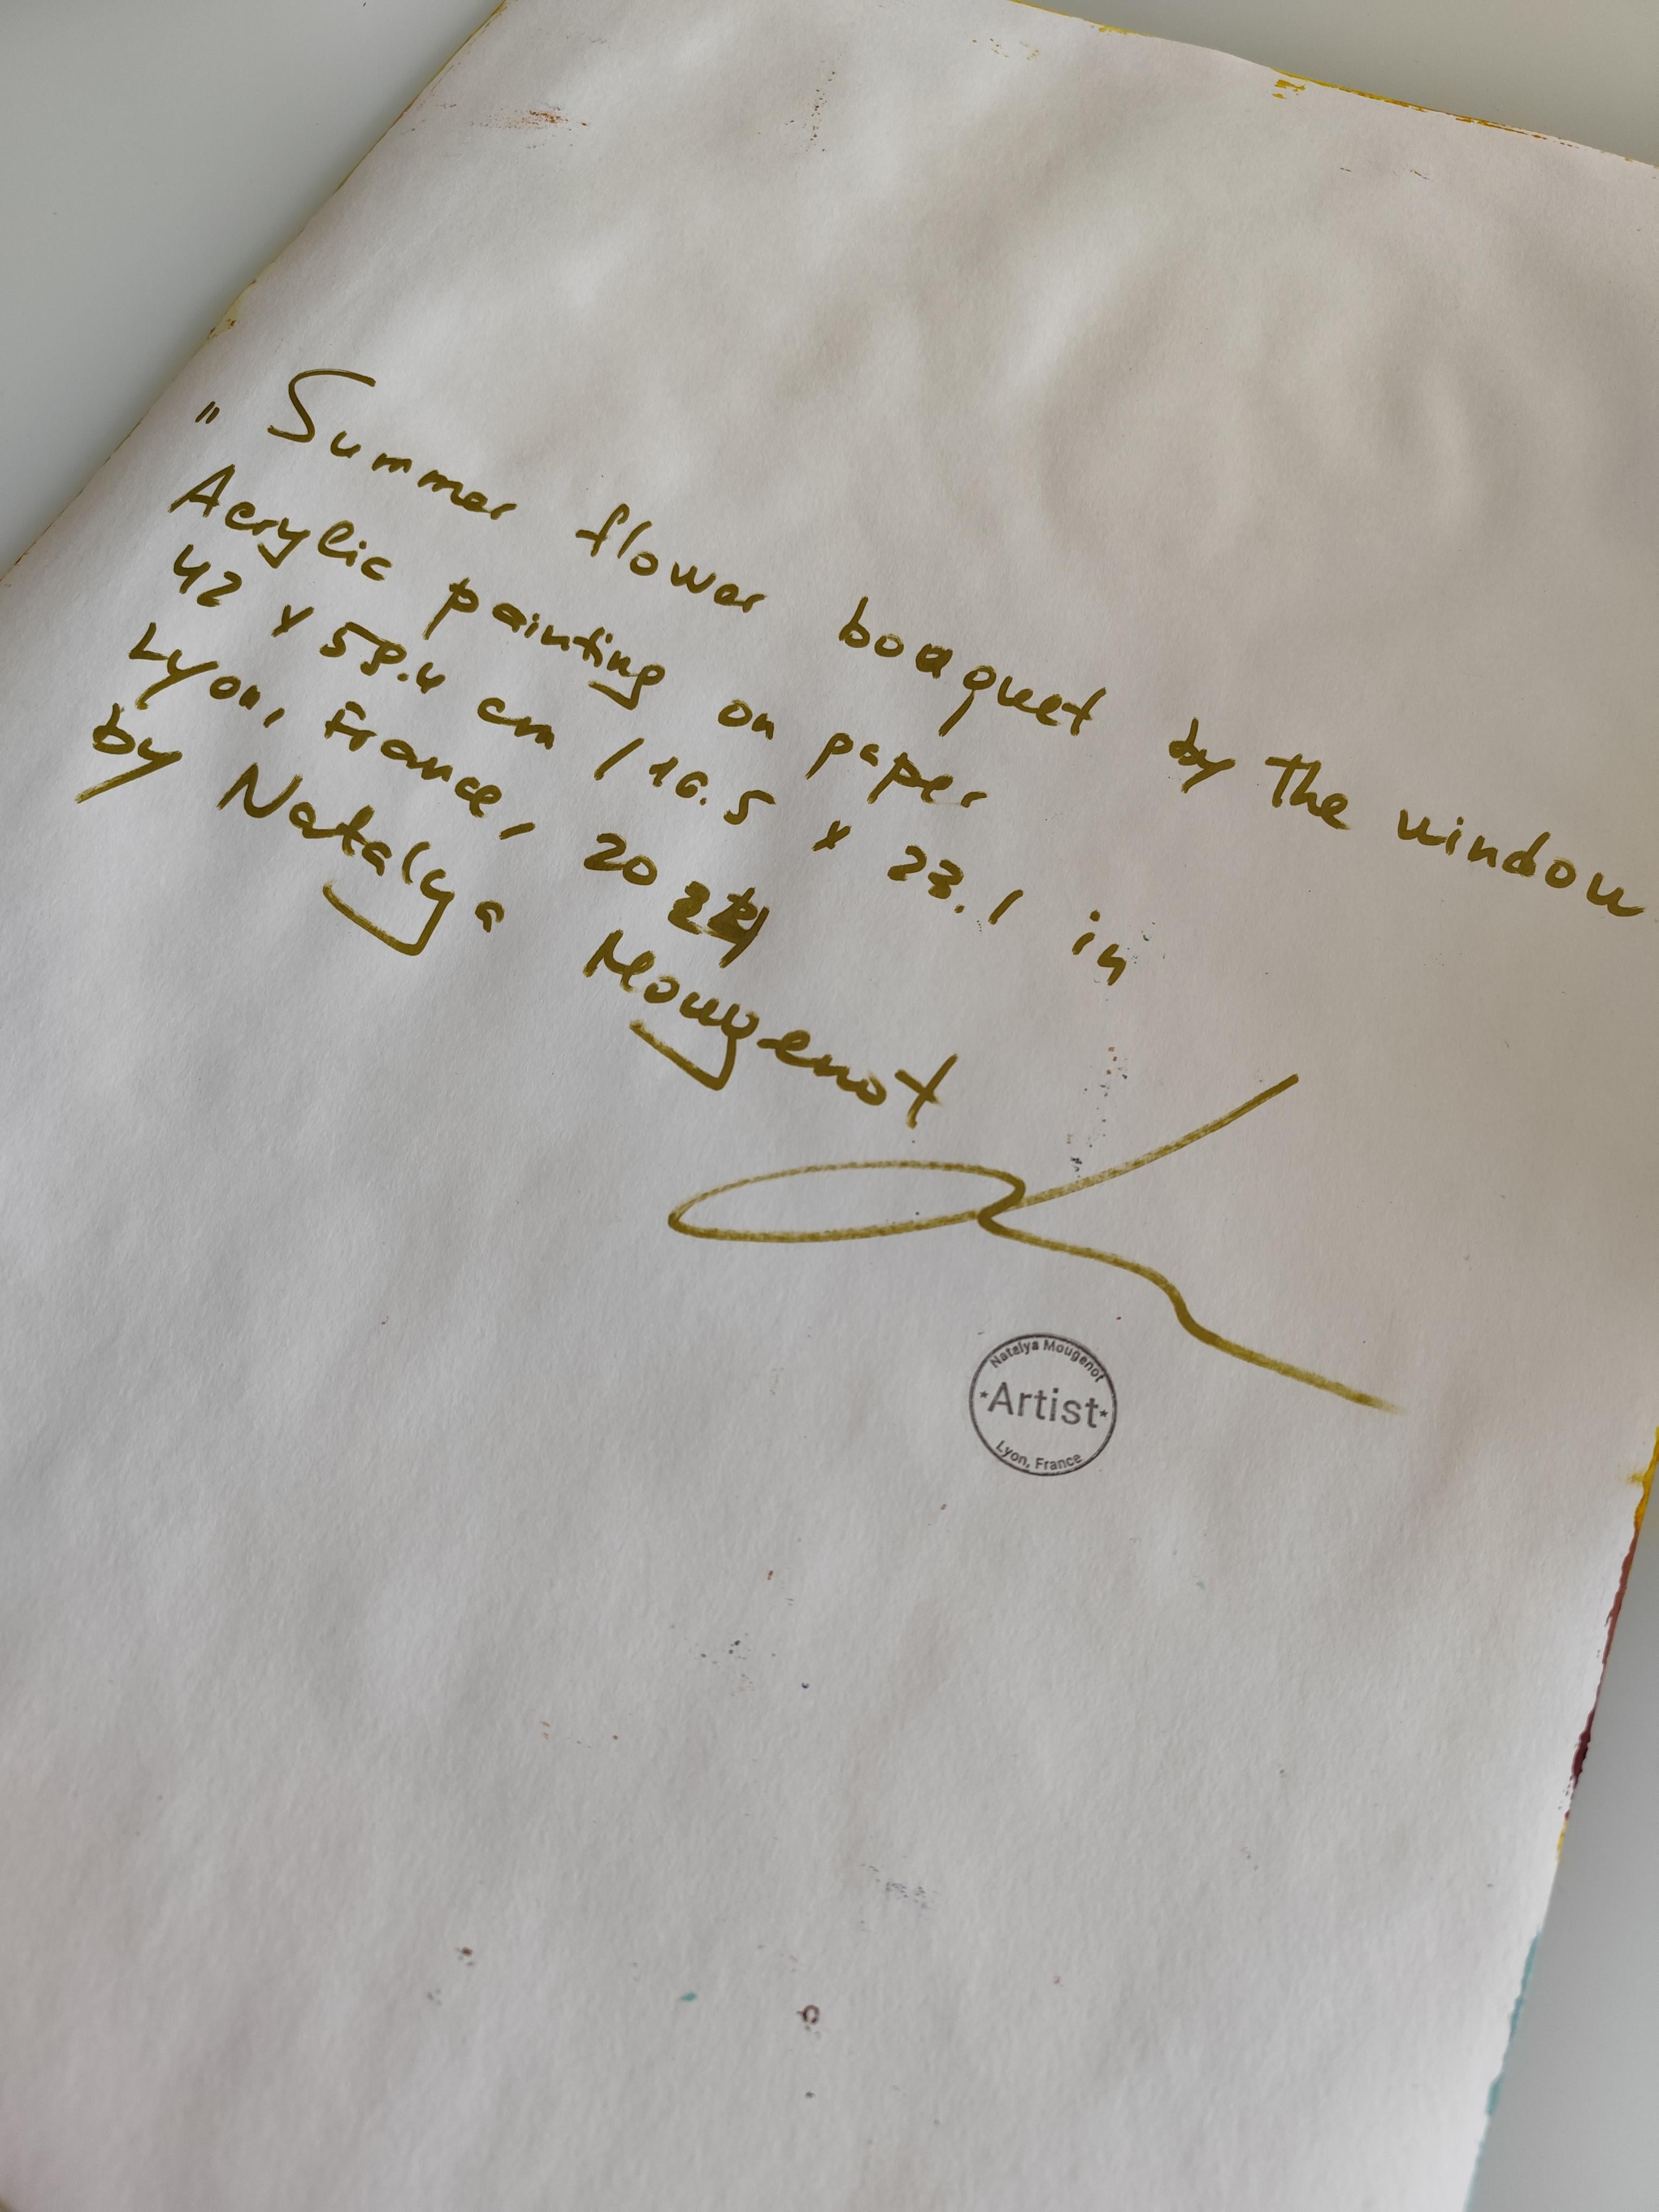 " Summer flower bouquet by the window
Acrylic painting on paper
42 x 59.4 cm / 16.5 x 23.1 in
Lyon, France,
by Natalya Mougenot
Natalya Mougenot
Artist
Lyon, France